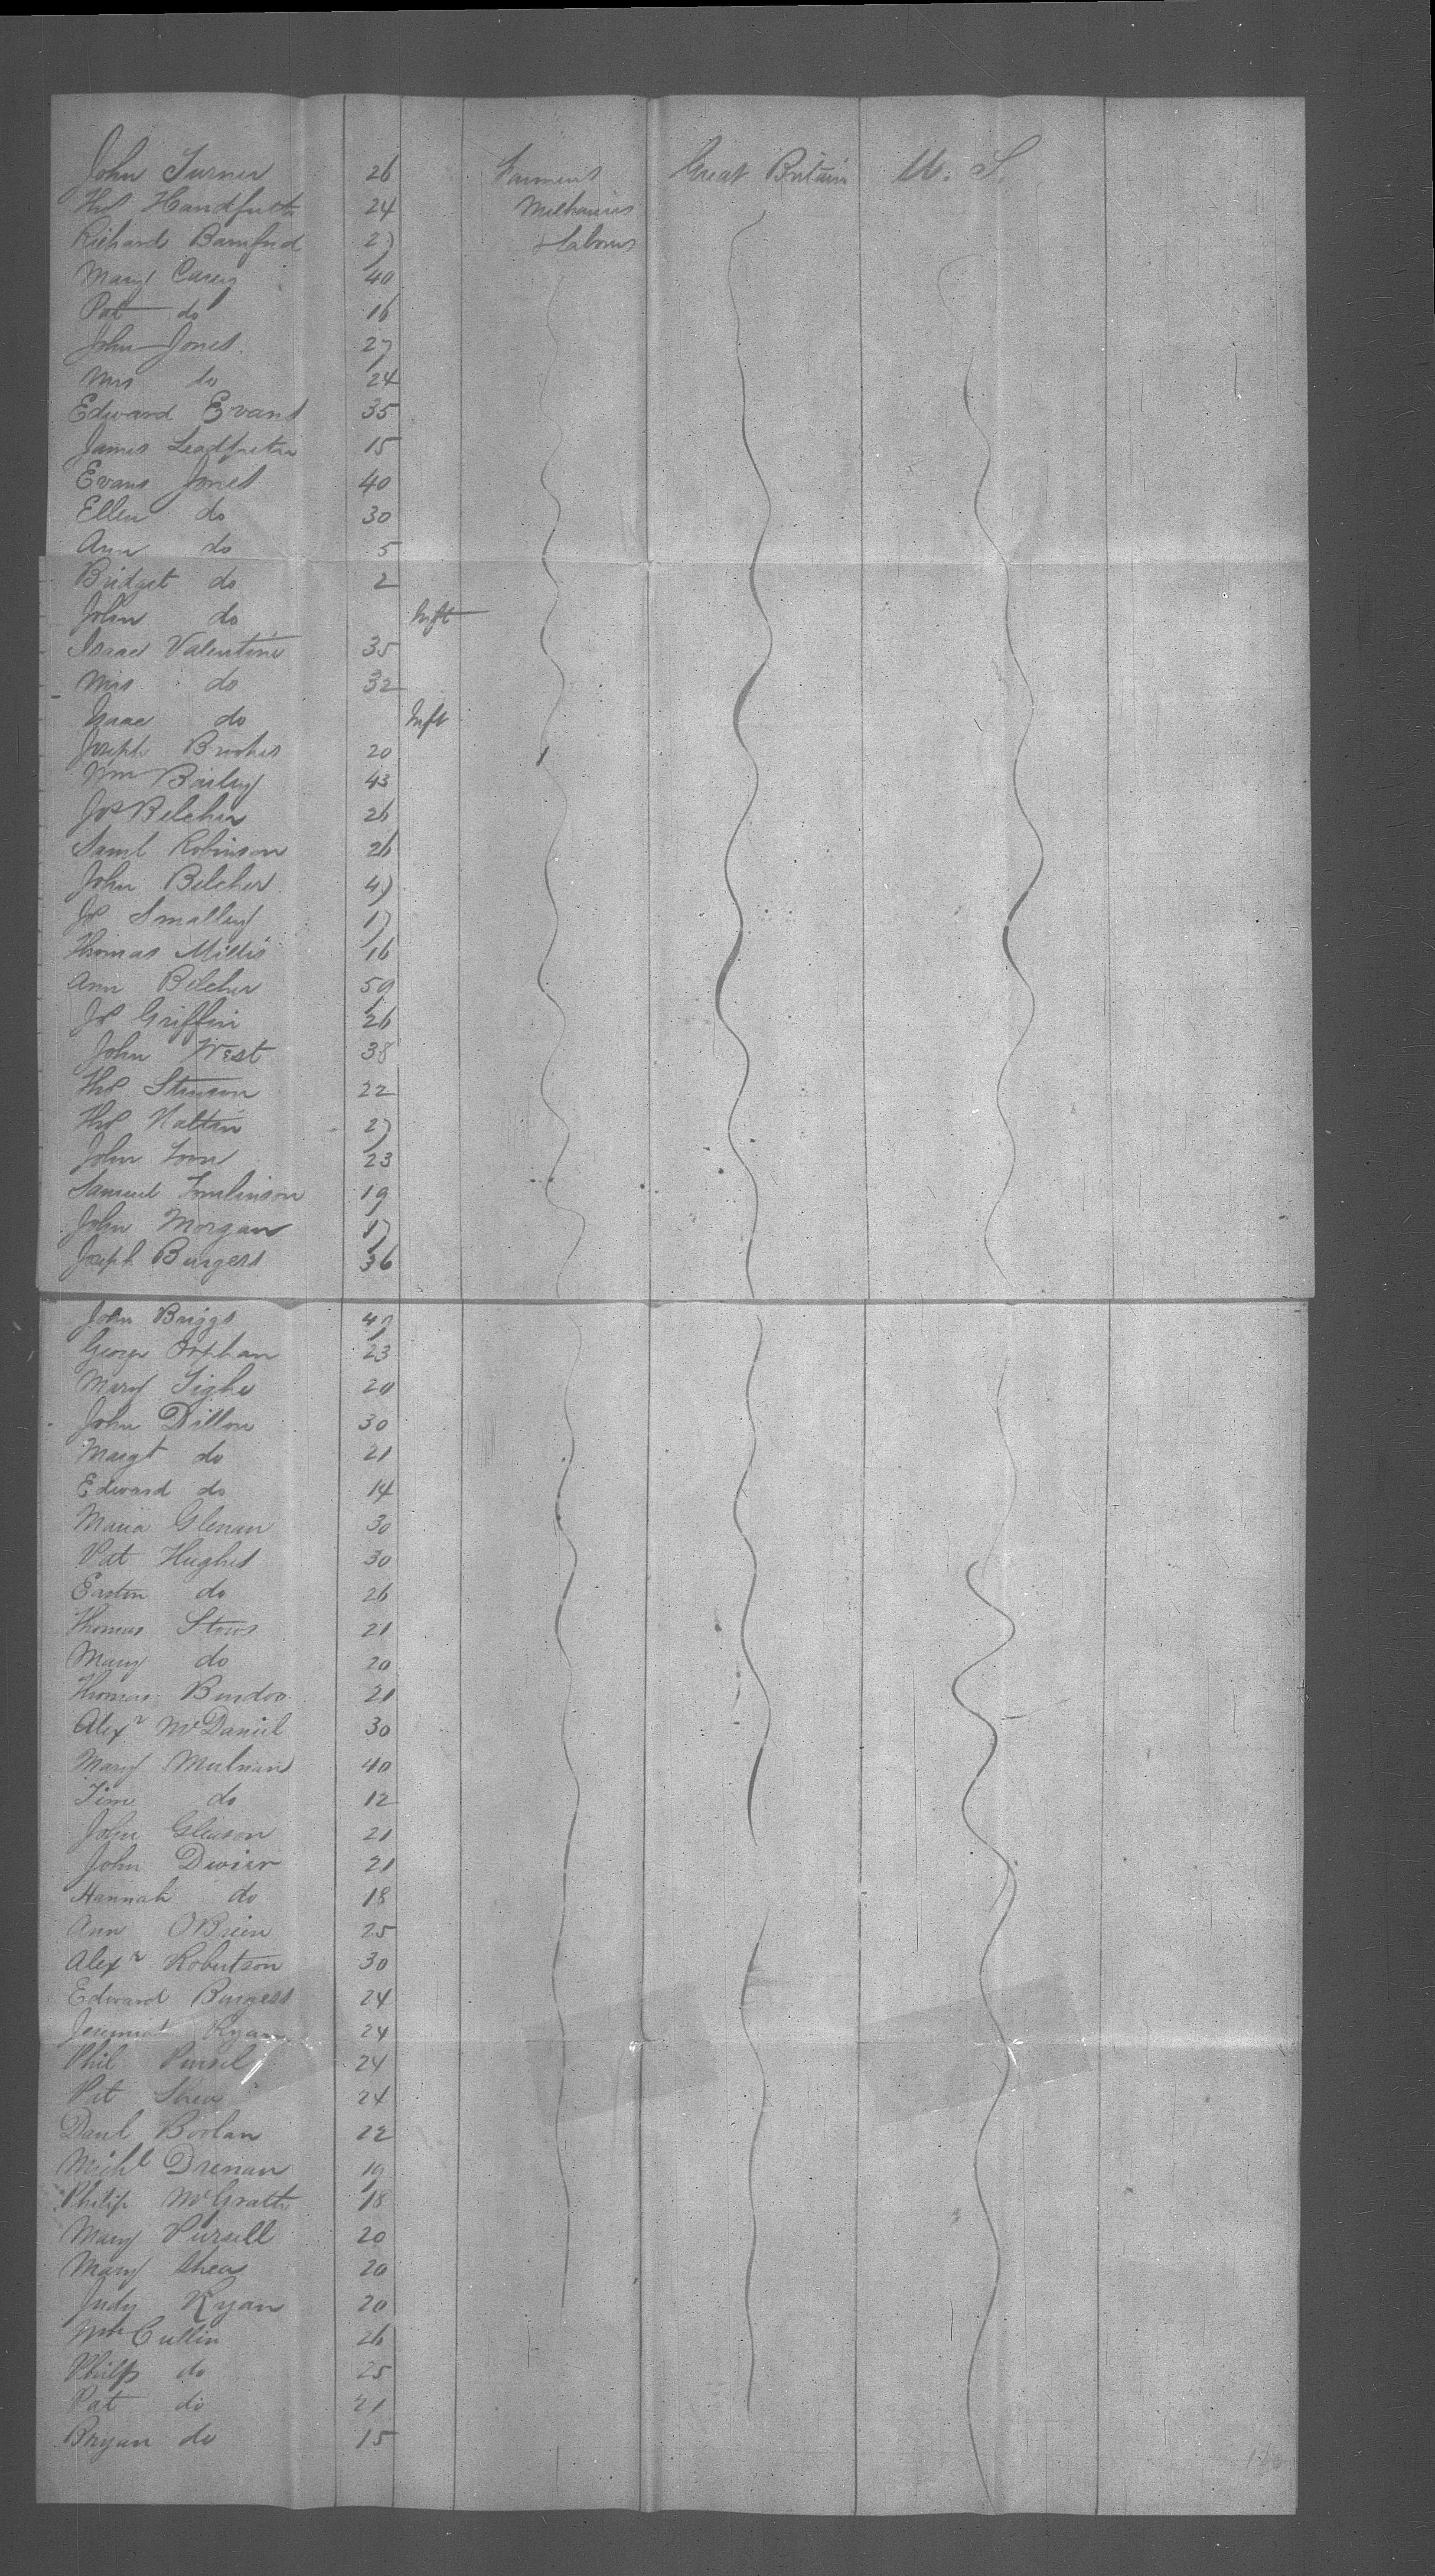 John Turner 26 Farmers Great Britain U. S.
Thos 24 Mechanics
Richard Bamford 27 & Labours
Mary Casey 40
Pat do 16
John Jones 27
Mrs do 24
Edward Evans 35
James 15
Evans Jones 40
Ellen do 30
Ann do 5
Bridget do 2
John do Inft
Isaac Valentine 35
Mrs do 32
Isaac do Inft
Joseph 20
Wm Bailey 43
Jos Belcher 26
Saml Robinson 26
John Belcher 47
Jos Smalley 17
Thomas Millis 16
Ann Belcher 59
Jos Griffin 26
John West 38
Thos Stinson 22
Thos 27
John 23
Samuel Tomlinson 19
John Morgan 17
Joseph Burgess 36
John Briggs
George Orphan 23
Mary Tighe 20
John Dillon 30
Margt do 21
Edward do 14
Maria Glenan 30
Pat Hughes 30
Easton do 26
Thomas 21
Mary do 20
Thomas 21
Alexr McDaniel 30
Mary 40
Tim do 12
John Gleason 21
John Dwier 21
Hannah do 18
Ann OBrien 25
Alexr Robertson 30
Edward Burgess 24
Jeremiah Ryan 24
Phil Pursel 24
Pat Shea 24
Danl Boolan 22
Michl Drenan 19
Philip McGrath 18
Mary Pursell 20
Mary Shea 20
Judy Ryan 20
Wm Cullin 26
Philip do 25
Pat do 21
Bryan do 15